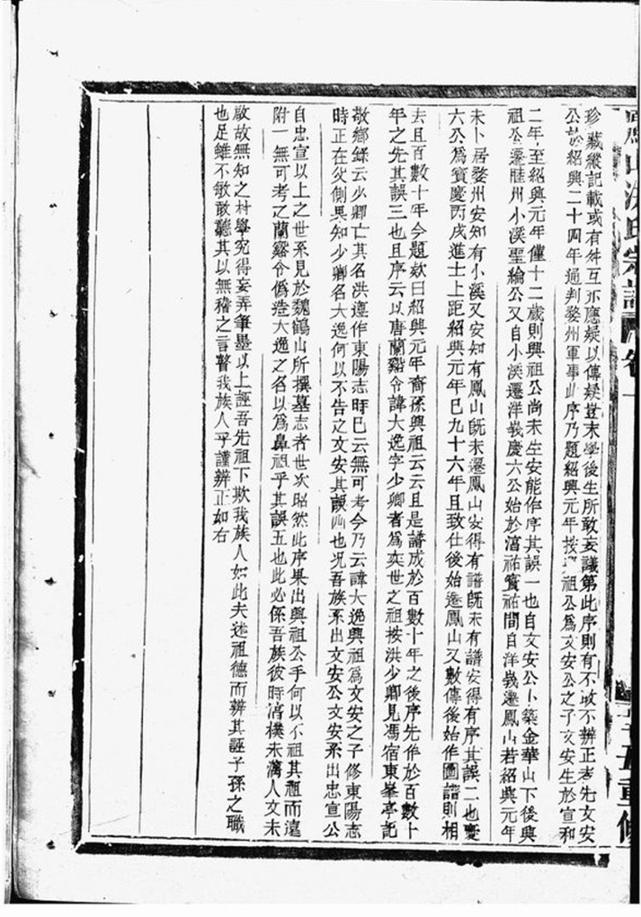 珍藏纔記載或有舛互亦應疑以傳疑豈末學後生所敢妄議第此序則有不敢不辨正者先文安
公於紹興二十四年通判婺州軍事此序乃題紹興元年按興祖公為文安公之子文安生於宣和
二年至紹興元年僅十二歲則興祖公尚未生安能作序其誤一也自文安公卜築金華山下後興
祖公遷睦州小溪聖綸公又自小溪遷洋峩慶六公始於湻祐寶祐間自洋峩遷鳳山若紹興元年
未卜居婺州安知有小溪又安知有鳳山旣未遷鳳山安得有譜旣未有譜安得有序其誤二也慶
六公為寶慶丙戌進士上距紹興元年已九十六年且致仕後始遷鳳山又數傳後始作圖譜則相
去且百數十年今題欵曰紹興元年裔孫興祖云云且是譜成於百數十年之後序先作於百數十
年之先其誤三也且序云以唐蘭谿令諱大逸字少卿者為奕世之祖按洪少卿見馮宿東峯亭記
敬鄉錄云少卿亡其名洪遵作東陽志時已云無可考今乃云諱大逸興祖為文安之子修東陽志
時正在父側果知少卿名大逸何以不告之文安其誤四也况吾族系出文安公文安系出忠宣公
自忠宣以上之世系見於魏鶴山所撰墓志者世次昭然此序果出興祖公手何以不祖其祖而遠
附一無可考之蘭谿令僞造大逸之名以為鼻祖乎其誤五也此必係吾族彼時湻樸未漓人文未
啟故無知之村學究得妄弄筆墨以上誣吾先祖下欺我族人如此夫述祖德而辨其誣子孫之職
也足雖不敏敢聽其以無稽之言瞽我族人乎謹辨正如右
洪氏宗譜
卷一
五重修